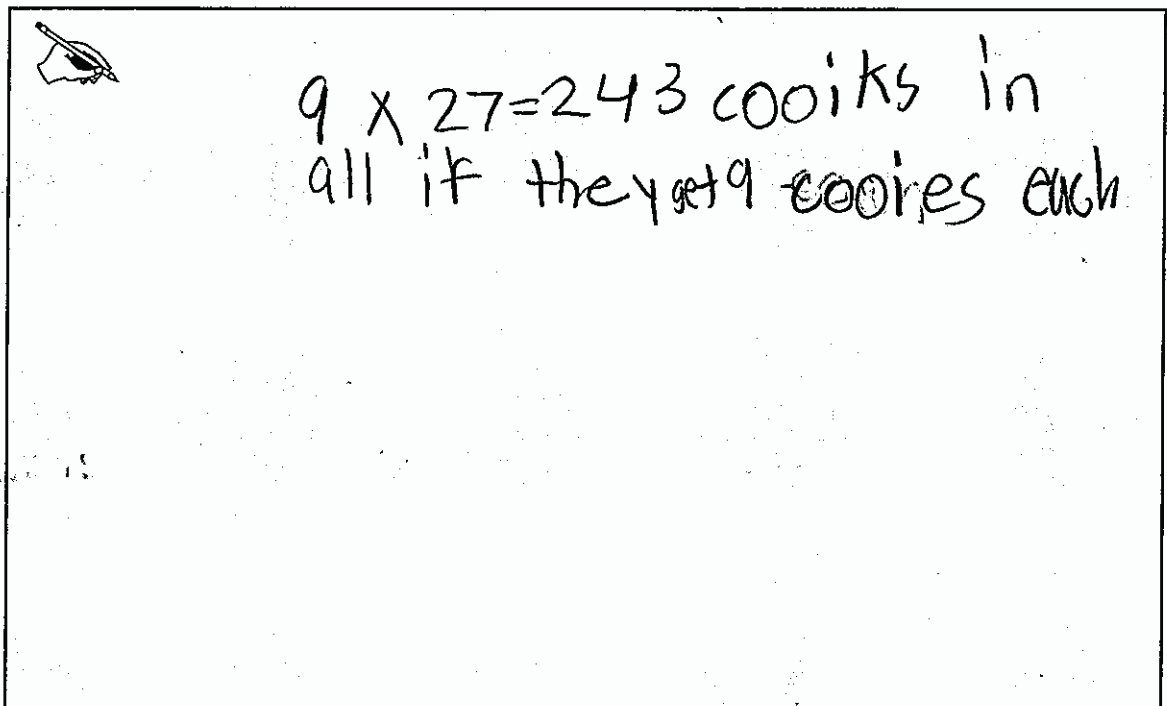 9 x 27=243 cooiks in
all if they get 9 cooies each